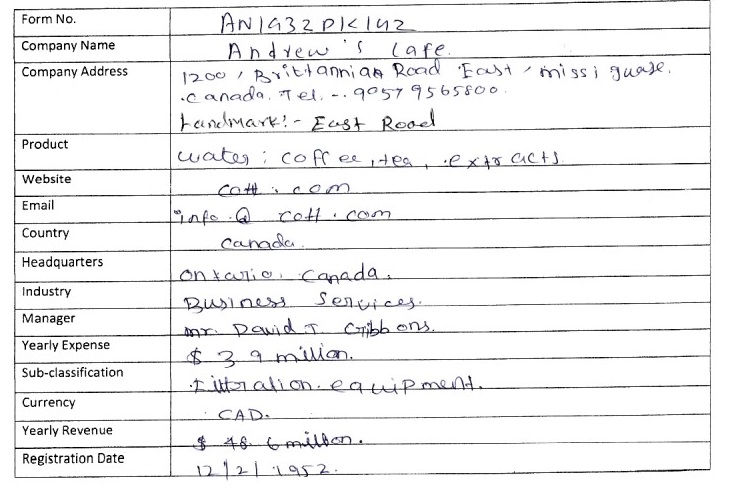 Form No. AN1932PK142
Company Name Andrew's Cafe.
Company Address 1200, Brittannian Road East, missiguase.
Canada. Tel. -. 90579565800.
Landmark:- East Road
Product water; coffee, tea, extracts
Website cott.com
Email info.@ cott.com
Country Canada.
Headquarters ontario, Canada.
Industry Business Services.
Manager mr. David T. Gibbons.
Yearly Expense $ 3.9 million.
Sub-classification filtration equipment.
Currency CAD.
Yearly Revenue $ 48.6 million.
Registration Date 12/2/1952.